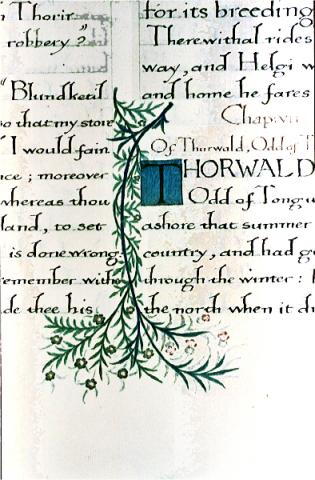 Thorir
robbery?"
"Blundketil
so that my store
"I would fain
nce; moreover
whereas thou
land, to set
is done wrong
emember witho
de thee his
for its breeding
Therewithal rides
way, and Helgi w
and home he fares
Chap: vii
Of Thorwald, Odd of T
THORWALD
Odd of Tongu
ashore that summer
country, and had g
through the winter:
the north when it dr